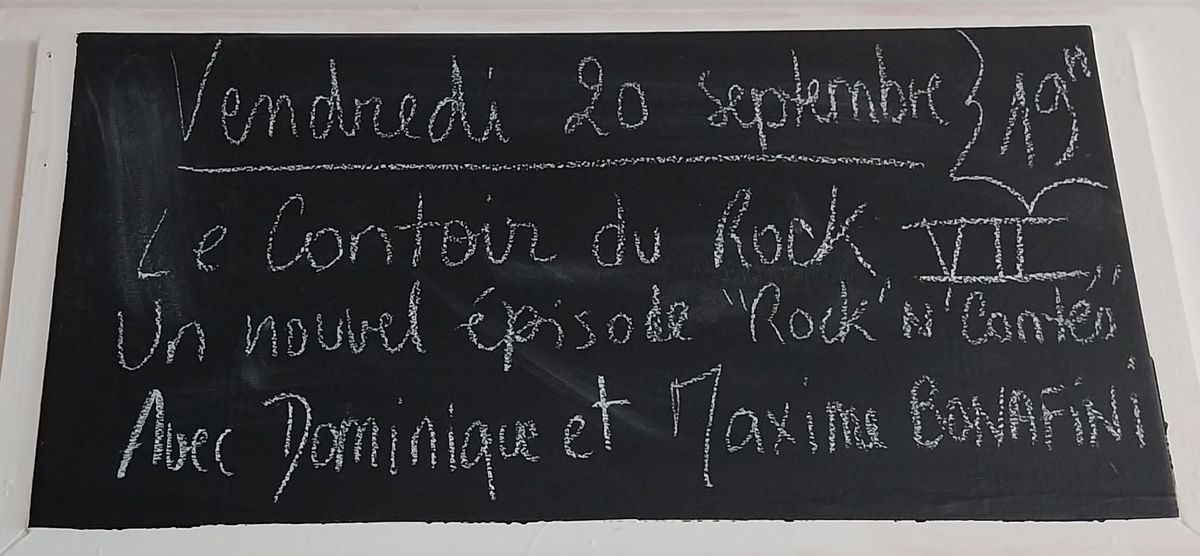 Vendredi 20 septembre } 19H
Le Contoir du Rock VII
Un nouvel épisode "Rock' N' Contes"
Avec Dominique et Maxime BONAFINI